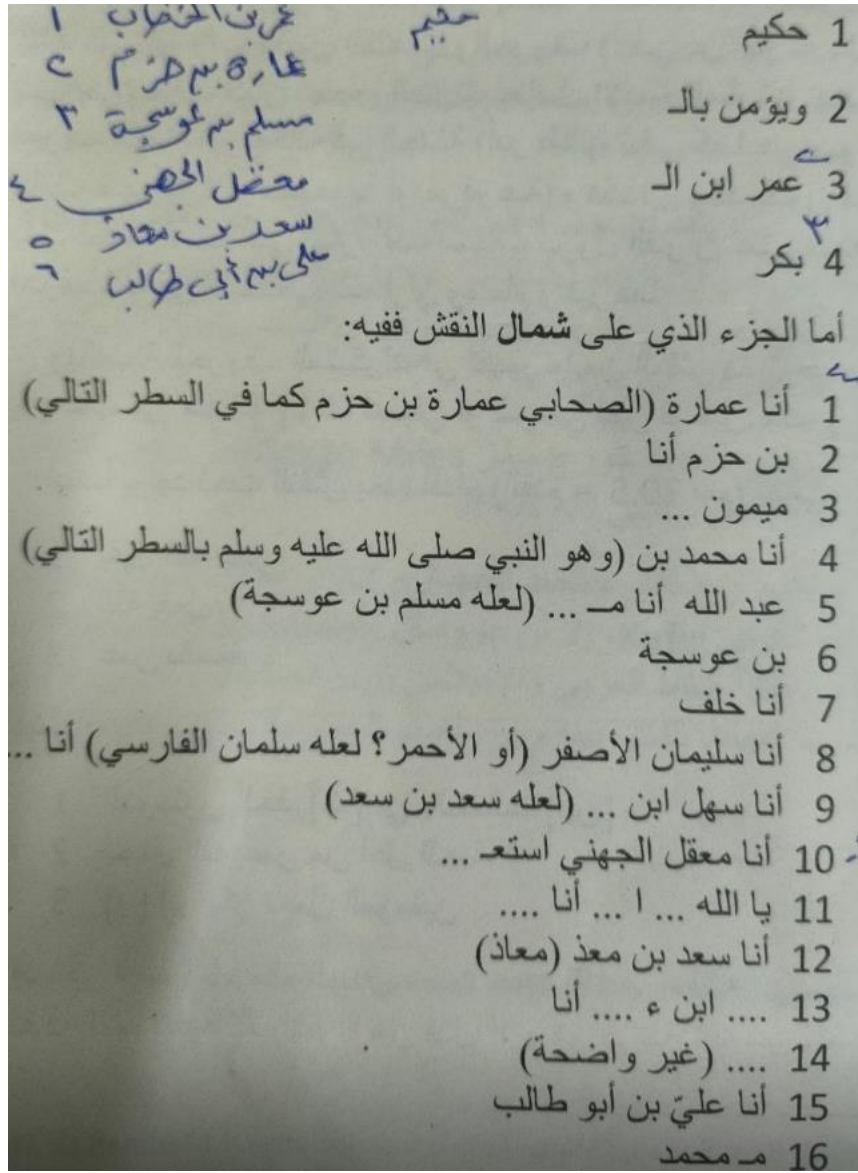 عمر بن الخطاب ١
عمارة بن حزم ٢
مسلم بن عوسجة ٣
معقل الجهني ٤
سعد بن معاذ ٥
علي بن أبي طالب ٦
1 حكيم
2 ويؤمن بالـ
3 عمر ابن الـ
4 بكر
أما الجزء الذي على شمال النقش ففيه:
1 أنا عمارة (الصحابي عمارة بن حزم كما في السطر التالي)
2 بن حزم أنا
3 ميمون ...
4 أنا محمد بن (وهو النبي صلى الله عليه وسلم بالسطر التالي)
5 عبد الله أنا مـ ... (لعله مسلم بن عوسجة)
6 بن عوسجة
7 أنا خلف
8 أنا سليمان الأصفر (أو الأحمر؟ لعله سلمان الفارسي) أنا ...
9 أنا سهل ابن ... (لعله سعد بن سعد)
10 أنا معقل الجهني استعـ ...
11 يا الله ... ا ... أنا ....
12 أنا سعد بن معذ (معاذ)
13 .... ابن ء .... أنا
14 .... (غير واضحة)
15 أنا عليّ بن أبو طالب
16 مـ محمد